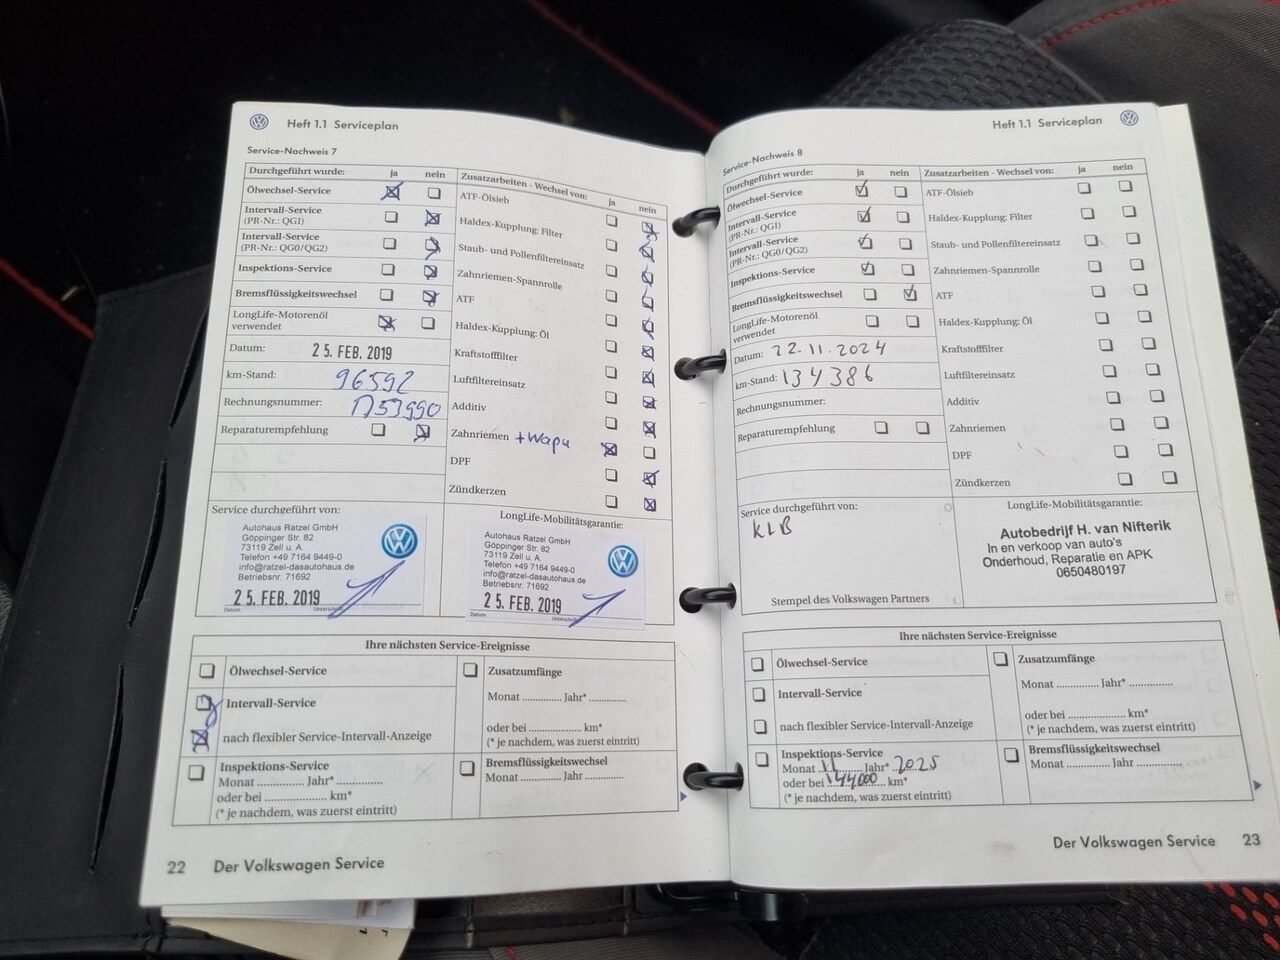 Heft 1.1 Serviceplan
Service-Nachweis 7
Durchgeführt wurde: ja nein
Ölwechsel-Service
Intervall-Service
(PR-Nr.: QG1)
Intervall-Service
(PR-Nr.: QG0/QG2)
Inspektions-Service
Bremsflüssigkeitswechsel
LongLife-Motorenöl
verwendet
Datum: 25. FEB. 2019
km-Stand: 96592
Rechnungsnummer: 1753990
Reparaturempfehlung
Zusatzarbeiten - Wechsel von: ja nein
ATF-Ölsieb
Haldex-Kupplung: Filter
Staub- und Pollenfiltereinsatz
Zahnriemen-Spannrolle
ATF
Haldex-Kupplung: Öl
Kraftstofffilter
Luftfiltereinsatz
Additiv
Zahnriemen + Wapu
DPF
Zündkerzen
Service durchgeführt von:
Autohaus Ratzel GmbH
Göppinger Str. 82
73119 Zell u. A.
Telefon +49 7164 9449-0
info@ratzel-dasautohaus.de
Betriebsnr. 71692
25. FEB. 2019
Datum Unterschrift
LongLife-Mobilitätsgarantie:
Autohaus Ratzel GmbH
Göppinger Str. 82
73119 Zell u. A.
Telefon +49 7164 9449-0
info@ratzel-dasautohaus.de
Betriebsnr. 71692
25. FEB. 2019
Datum
Ihre nächsten Service-Ereignisse
Ölwechsel-Service
Intervall-Service
nach flexibler Service-Intervall-Anzeige
Inspektions-Service
Monat .............. Jahr* ..............
oder bei .................... km*
(* je nachdem, was zuerst eintritt)
Zusatzumfänge
Monat .............. Jahr* ..............
oder bei .................... km*
(* je nachdem, was zuerst eintritt)
Bremsflüssigkeitswechsel
Monat .............. Jahr ..............
22 Der Volkswagen Service
Heft 1.1 Serviceplan
Service-Nachweis 8
Durchgeführt wurde: ja nein
Ölwechsel-Service
Intervall-Service
(PR-Nr.: QG1)
Intervall-Service
(PR-Nr.: QG0/QG2)
Inspektions-Service
Bremsflüssigkeitswechsel
LongLife-Motorenöl
verwendet
Datum: 22.11.2024
km-Stand: 134386
Rechnungsnummer:
Reparaturempfehlung
Zusatzarbeiten - Wechsel von: ja nein
ATF-Ölsieb
Haldex-Kupplung: Filter
Staub- und Pollenfiltereinsatz
Zahnriemen-Spannrolle
ATF
Haldex-Kupplung: Öl
Kraftstofffilter
Luftfiltereinsatz
Additiv
Zahnriemen
DPF
Zündkerzen
Service durchgeführt von:
KLB
Stempel des Volkswagen Partners
LongLife-Mobilitätsgarantie:
Autobedrijf H. van Nifterik
In en verkoop van auto's
Onderhoud, Reparatie en APK
0650480197
Ihre nächsten Service-Ereignisse
Ölwechsel-Service
Intervall-Service
nach flexibler Service-Intervall-Anzeige
Inspektions-Service
Monat 11 Jahr* 2025
oder bei 144000 km*
(* je nachdem, was zuerst eintritt)
Zusatzumfänge
Monat .............. Jahr* ..............
oder bei .................... km*
(* je nachdem, was zuerst eintritt)
Bremsflüssigkeitswechsel
Monat .............. Jahr ..............
Der Volkswagen Service 23